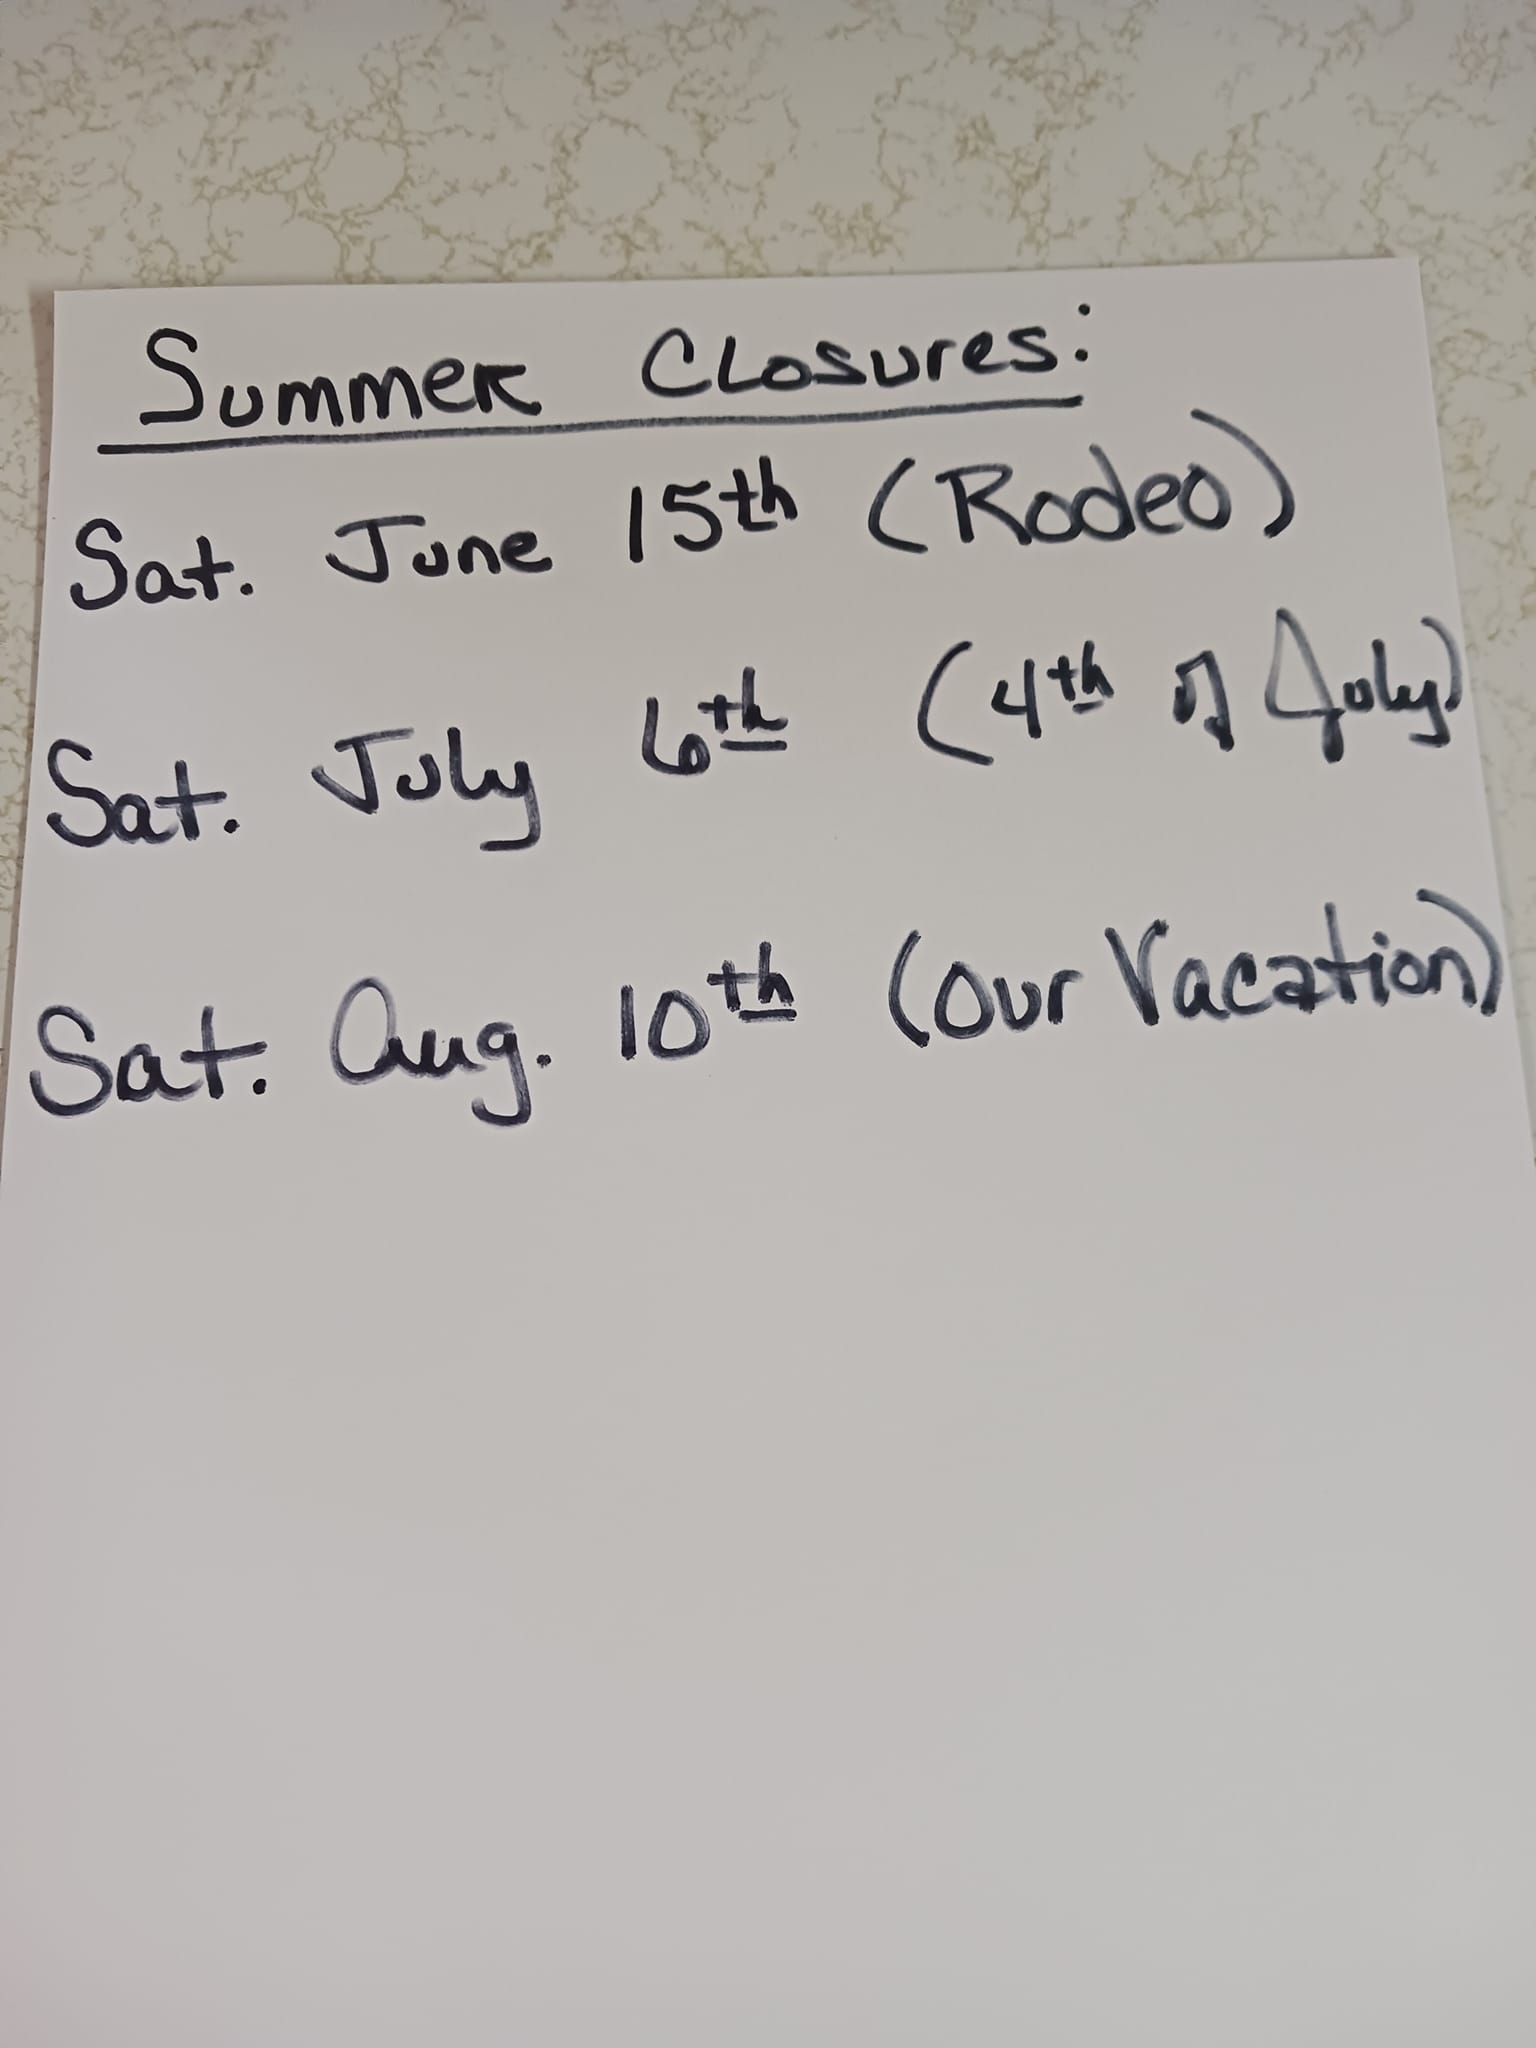 Summer Closures:
Sat. June 15th (Rodeo)
Sat. July 6th (4th of July)
Sat. Aug. 10th (Our Vacation)